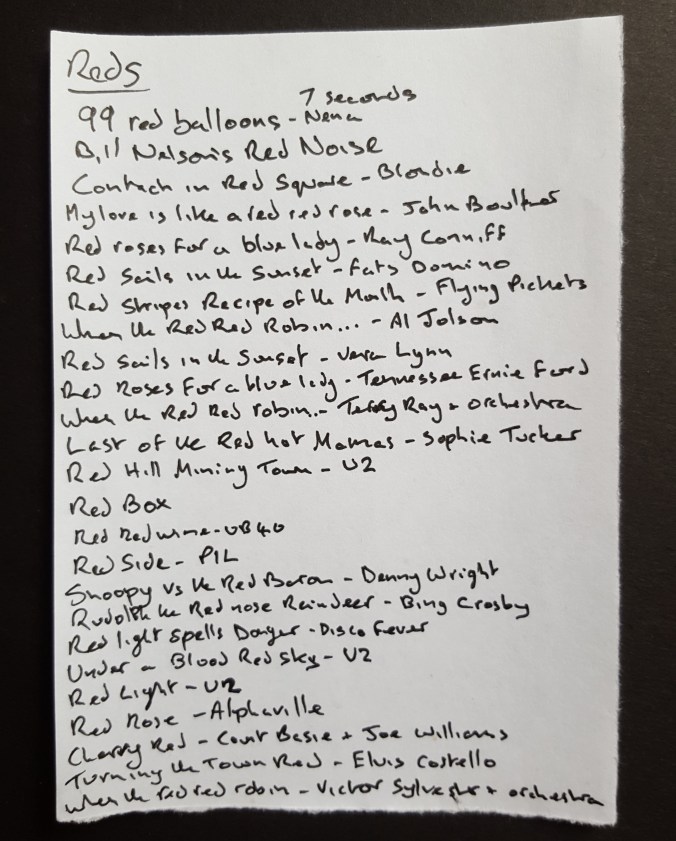 Reds
7 seconds
99 red balloons - Nena
Bill Nelson's Red Noise
Contact in Red Square - Blondie
My love is like a red red rose - John
Red roses for a blue lady - Ray Conniff
Red Sails in the Sunset - Fats Domino
Red Stripes Recipe of the Month - Flying Pickets
When the Red Red Robin... - Al Jolson
Red Sails in the Sunset - Vera Lynn
Red Roses For a blue lady - Tennessee Ernie Ford
When the Red Red robin.. - Terry Ray + orchestra
Last of the Red hot Mamas - Sophie Tucker
Red Hill Mining Town - U2
Red Box
Red Red wine - UB40
Red Side - PIL
Snoopy vs the Red Baron - Danny Wright
Rudolph the Red nose Reindeer - Bing Crosby
Red light spells Danger - Disco Fever
Under a Blood Red Sky - U2
Red Light - U2
Red Rose - Alphaville
Cherry Red - Count Basie + Joe Williams
Turning the Town Red - Elvis Costello
When the red red robin - Victor Sylvester + orchestra